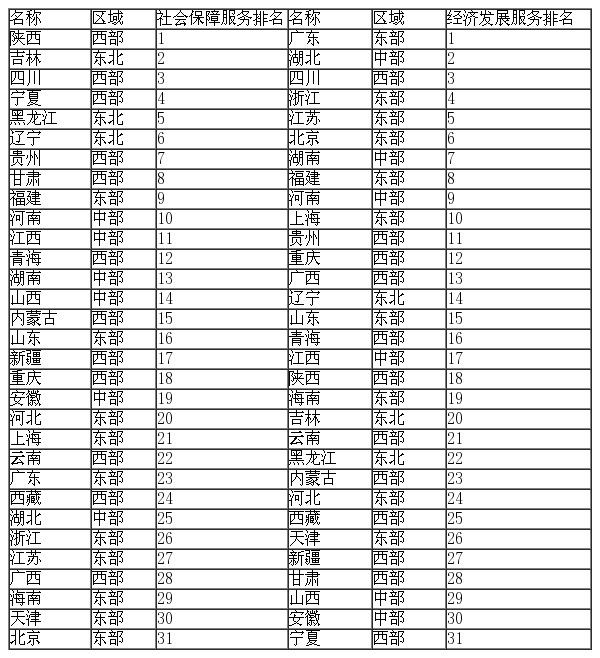 名称 区域 社会保障服务排名 名称 区域 经济发展服务排名
陕西 西部 1 广东 东部 1
吉林 东北 2 湖北 中部 2
四川 西部 3 四川 西部 3
宁夏 西部 4 浙江 东部 4
黑龙江 东北 5 江苏 东部 5
辽宁 东北 6 北京 东部 6
贵州 西部 7 湖南 中部 7
甘肃 西部 8 福建 东部 8
福建 东部 9 河南 中部 9
河南 中部 10 上海 东部 10
江西 中部 11 贵州 西部 11
青海 西部 12 重庆 西部 12
湖南 中部 13 广西 西部 13
山西 中部 14 辽宁 东北 14
内蒙古 西部 15 山东 东部 15
山东 东部 16 青海 西部 16
新疆 西部 17 江西 中部 17
重庆 西部 18 陕西 西部 18
安徽 中部 19 海南 东部 19
河北 东部 20 吉林 东北 20
上海 东部 21 云南 西部 21
云南 西部 22 黑龙江 东北 22
广东 东部 23 内蒙古 西部 23
西藏 西部 24 河北 东部 24
湖北 中部 25 西藏 西部 25
浙江 东部 26 天津 东部 26
江苏 东部 27 新疆 西部 27
广西 西部 28 甘肃 西部 28
海南 东部 29 山西 中部 29
天津 东部 30 安徽 中部 30
北京 东部 31 宁夏 西部 31